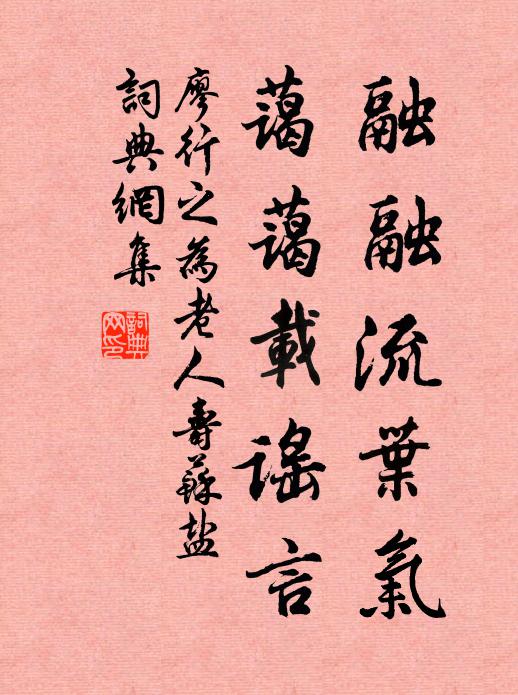 融融流葉氣
藹藹載謠言
廖行之為老人壽蘇盐
詞典網集
詞典
网印